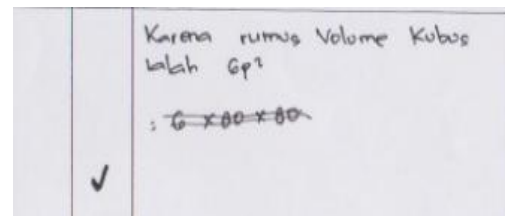 Karena rumus Volume Kubus
ialah 6p²
: 6 x 80 x 80
✓